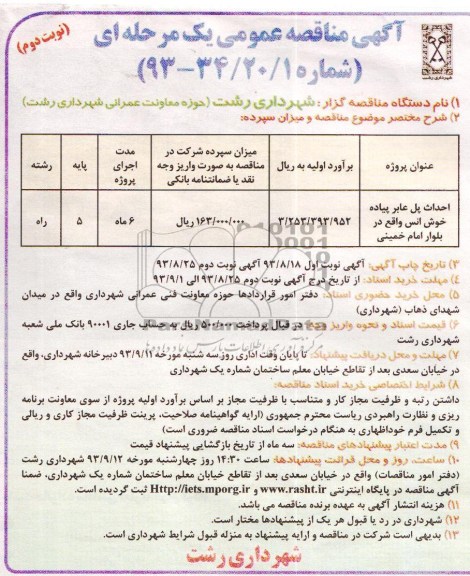 آگهی مناقصه عمومی یک مرحله ای
(نوبت دوم)
(شماره ۹۳-۳۴/۲۰/۱)
شهرداری رشت
۱) نام دستگاه مناقصه گزار: شهرداری رشت (حوزه معاونت عمرانی شهرداری رشت)
۲) شرح مختصر موضوع مناقصه و میزان سپرده:
عنوان پروژه | برآورد اولیه به ریال | میزان سپرده شرکت در مناقصه به صورت واریز وجه نقد یا ضمانتنامه بانکی | مدت اجرای پروژه | پایه | رشته
احداث پل عابر پیاده خوش انس واقع در بلوار امام خمینی | ۳/۲۵۳/۳۹۳/۹۵۲ | ۱۶۳/۰۰۰/۰۰۰ ریال | ۶ ماه | ۵ | راه
۳) تاریخ چاپ آگهی: آگهی نوبت اول ۹۳/۸/۱۸ آگهی نوبت دوم ۹۳/۸/۲۵
۴) مهلت خرید اسناد: از تاریخ درج آگهی نوبت دوم ۹۳/۸/۲۵ الی ۹۳/۹/۱
۵) محل خرید حضوری اسناد: دفتر امور قراردادها حوزه معاونت فنی عمرانی شهرداری واقع در میدان
شهدای ذهاب (شهرداری)
۶) قیمت اسناد و نحوه واریز وجه: در قبال پرداخت ۵۰۰/۰۰۰ ریال به حساب جاری ۹۰۰۰۱ بانک ملی شعبه
شهرداری رشت
۷) مهلت و محل دریافت پیشنهاد: تا پایان وقت اداری روز سه شنبه مورخه ۹۳/۹/۱۱ دبیرخانه شهرداری، واقع
در خیابان سعدی بعد از تقاطع خیابان معلم ساختمان شماره یک شهرداری
۸) شرایط اختصاصی خرید اسناد مناقصه:
داشتن رتبه و ظرفیت مجاز کار و متناسب با ظرفیت مجاز بر اساس برآورد اولیه پروژه از سوی معاونت برنامه
ریزی و نظارت راهبردی ریاست محترم جمهوری (ارایه گواهینامه صلاحیت، پرینت ظرفیت مجاز کاری و ریالی
و تکمیل فرم خوداظهاری به هنگام درخواست اسناد مناقصه ضروری است)
۹) مدت اعتبار پیشنهادهای مناقصه: سه ماه از تاریخ بازگشایی پیشنهاد قیمت
۱۰) ساعت، روز و محل قرائت پیشنهادها: ساعت ۱۴:۳۰ روز چهارشنبه مورخه ۹۳/۹/۱۲ شهرداری رشت
(دفتر امور مناقصات) واقع در خیابان سعدی بعد از تقاطع خیابان معلم ساختمان شماره یک شهرداری، ضمنا
آگهی مناقصه در پایگاه اینترنتی www.rasht.ir و Http://iets.mporg.ir ثبت گردیده است.
۱۱) هزینه انتشار آگهی به عهده برنده مناقصه می باشد.
۱۲) شهرداری در رد یا قبول هر یک از پیشنهادها مختار است.
۱۳) بدیهی است شرکت در مناقصه و ارایه پیشنهاد به منزله قبول شرایط شهرداری است.
شهرداری رشت